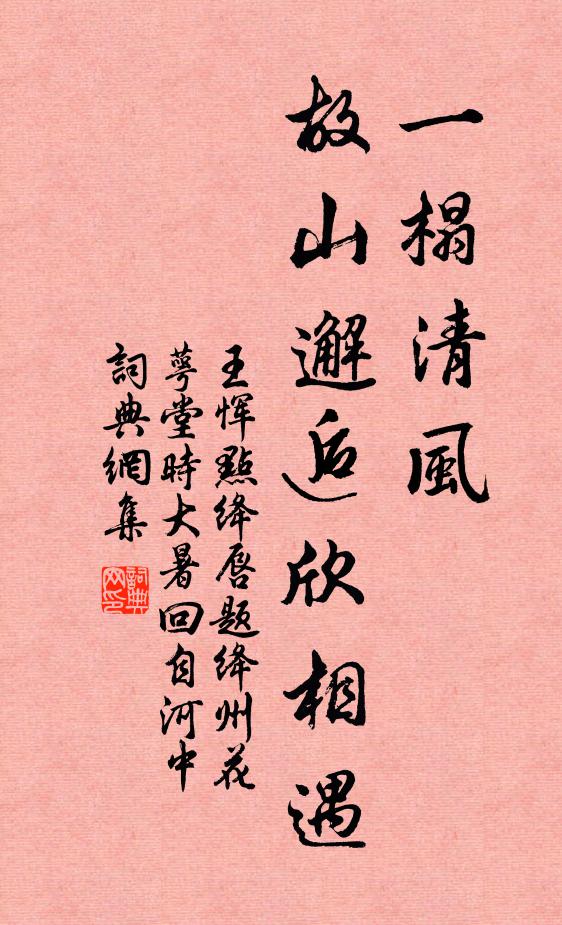 一榻清風
故山邂逅欣相遇
王恽點绛唇题绛州花
萼堂時大暑回自河中
詞典網集
詞典
网印